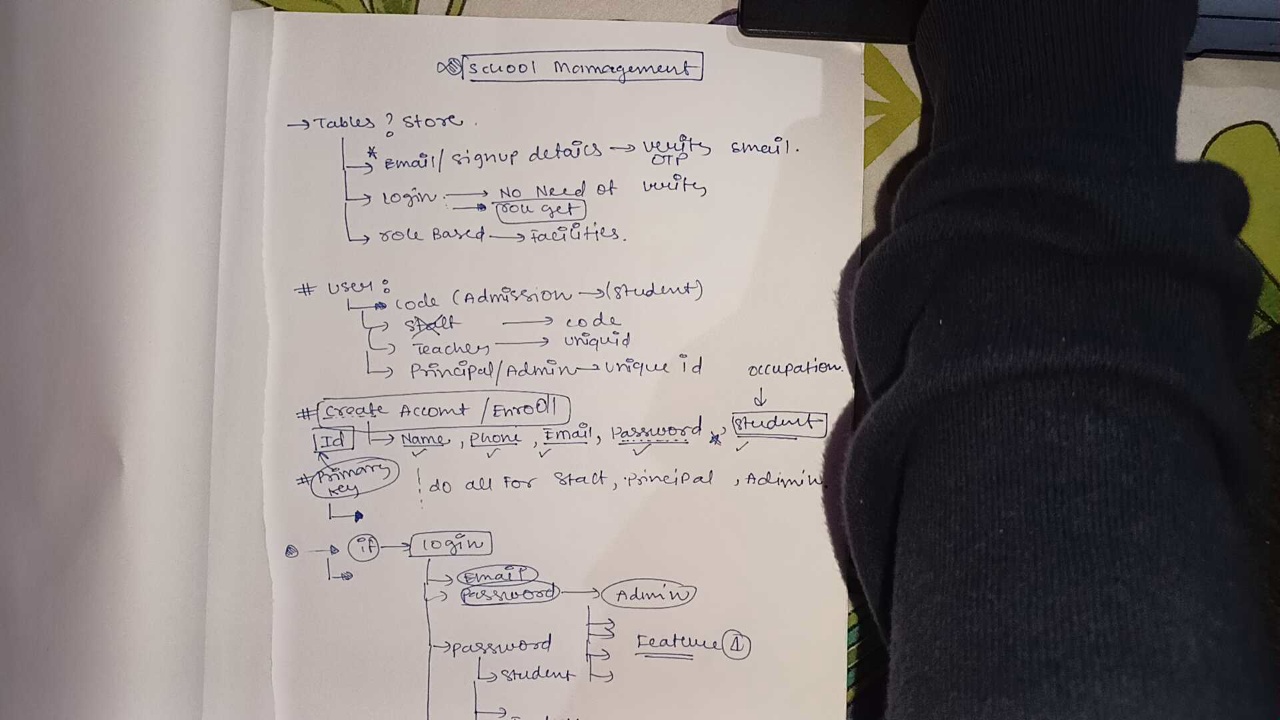 School Management
→ Tables? Store.
* Email/signup details → verify email.
OTP
Login → No Need of verify
→ role get
→ role Based → Facilities.
# User:
Code (Admission → (Student)
Staff → code
Teacher → uniquid
Principal/Admin → unique id
occupation.
# Create Account / Enroll
Id → Name, Phone, Email, Password, Student
# Primary Key
do all For Staff, Principal, Admin
→ if → login
→ Email
→ Password → Admin
→ password
Feature 1
→ Student